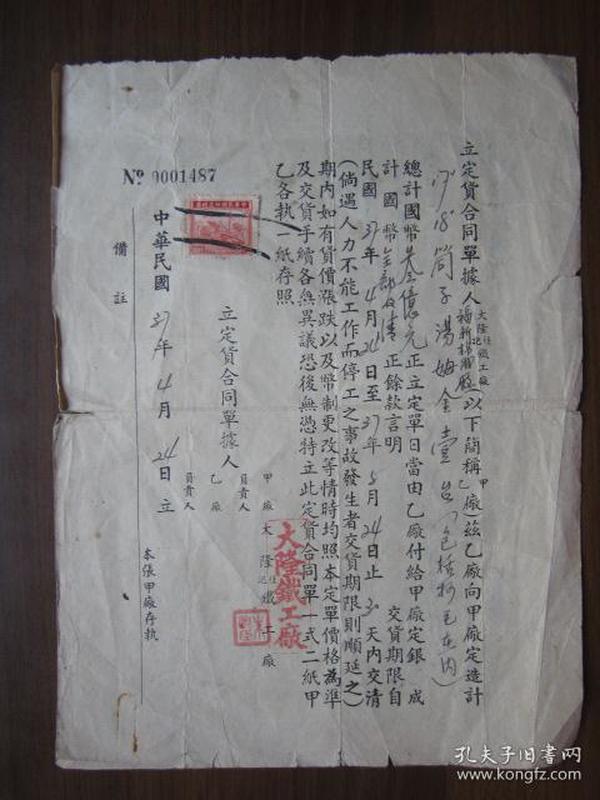 立定貨合同單據人大隆仕記鐵工廠 以下簡稱甲乙廠)茲乙廠向甲廠定造計
筒子湯姆全壹台(包括 在內)
總計國幣叁億元正立定單日當由乙廠付給甲廠定銀 成
計國幣全部 清正餘款言明 交貨期限自
民國37年4月24日至37年5月24日止30天內交清
(倘遇人力不能工作而停工之事故發生者交貨期限則順延之)
期內如有貨價漲跌以及幣制更改等情時均照本定單價格為準
及交貨手續各無異議恐後無憑特立此定貨合同單一式二紙甲
乙各執一紙存照
立定貨合同單據人
甲廠 大隆仕記鐵工廠
負責人
乙廠
負責人
大隆鐵工廠
中華民國37年4月24日立
№ 0001487
備註
本張甲廠存執
孔夫子旧書网
www.kongfz.com